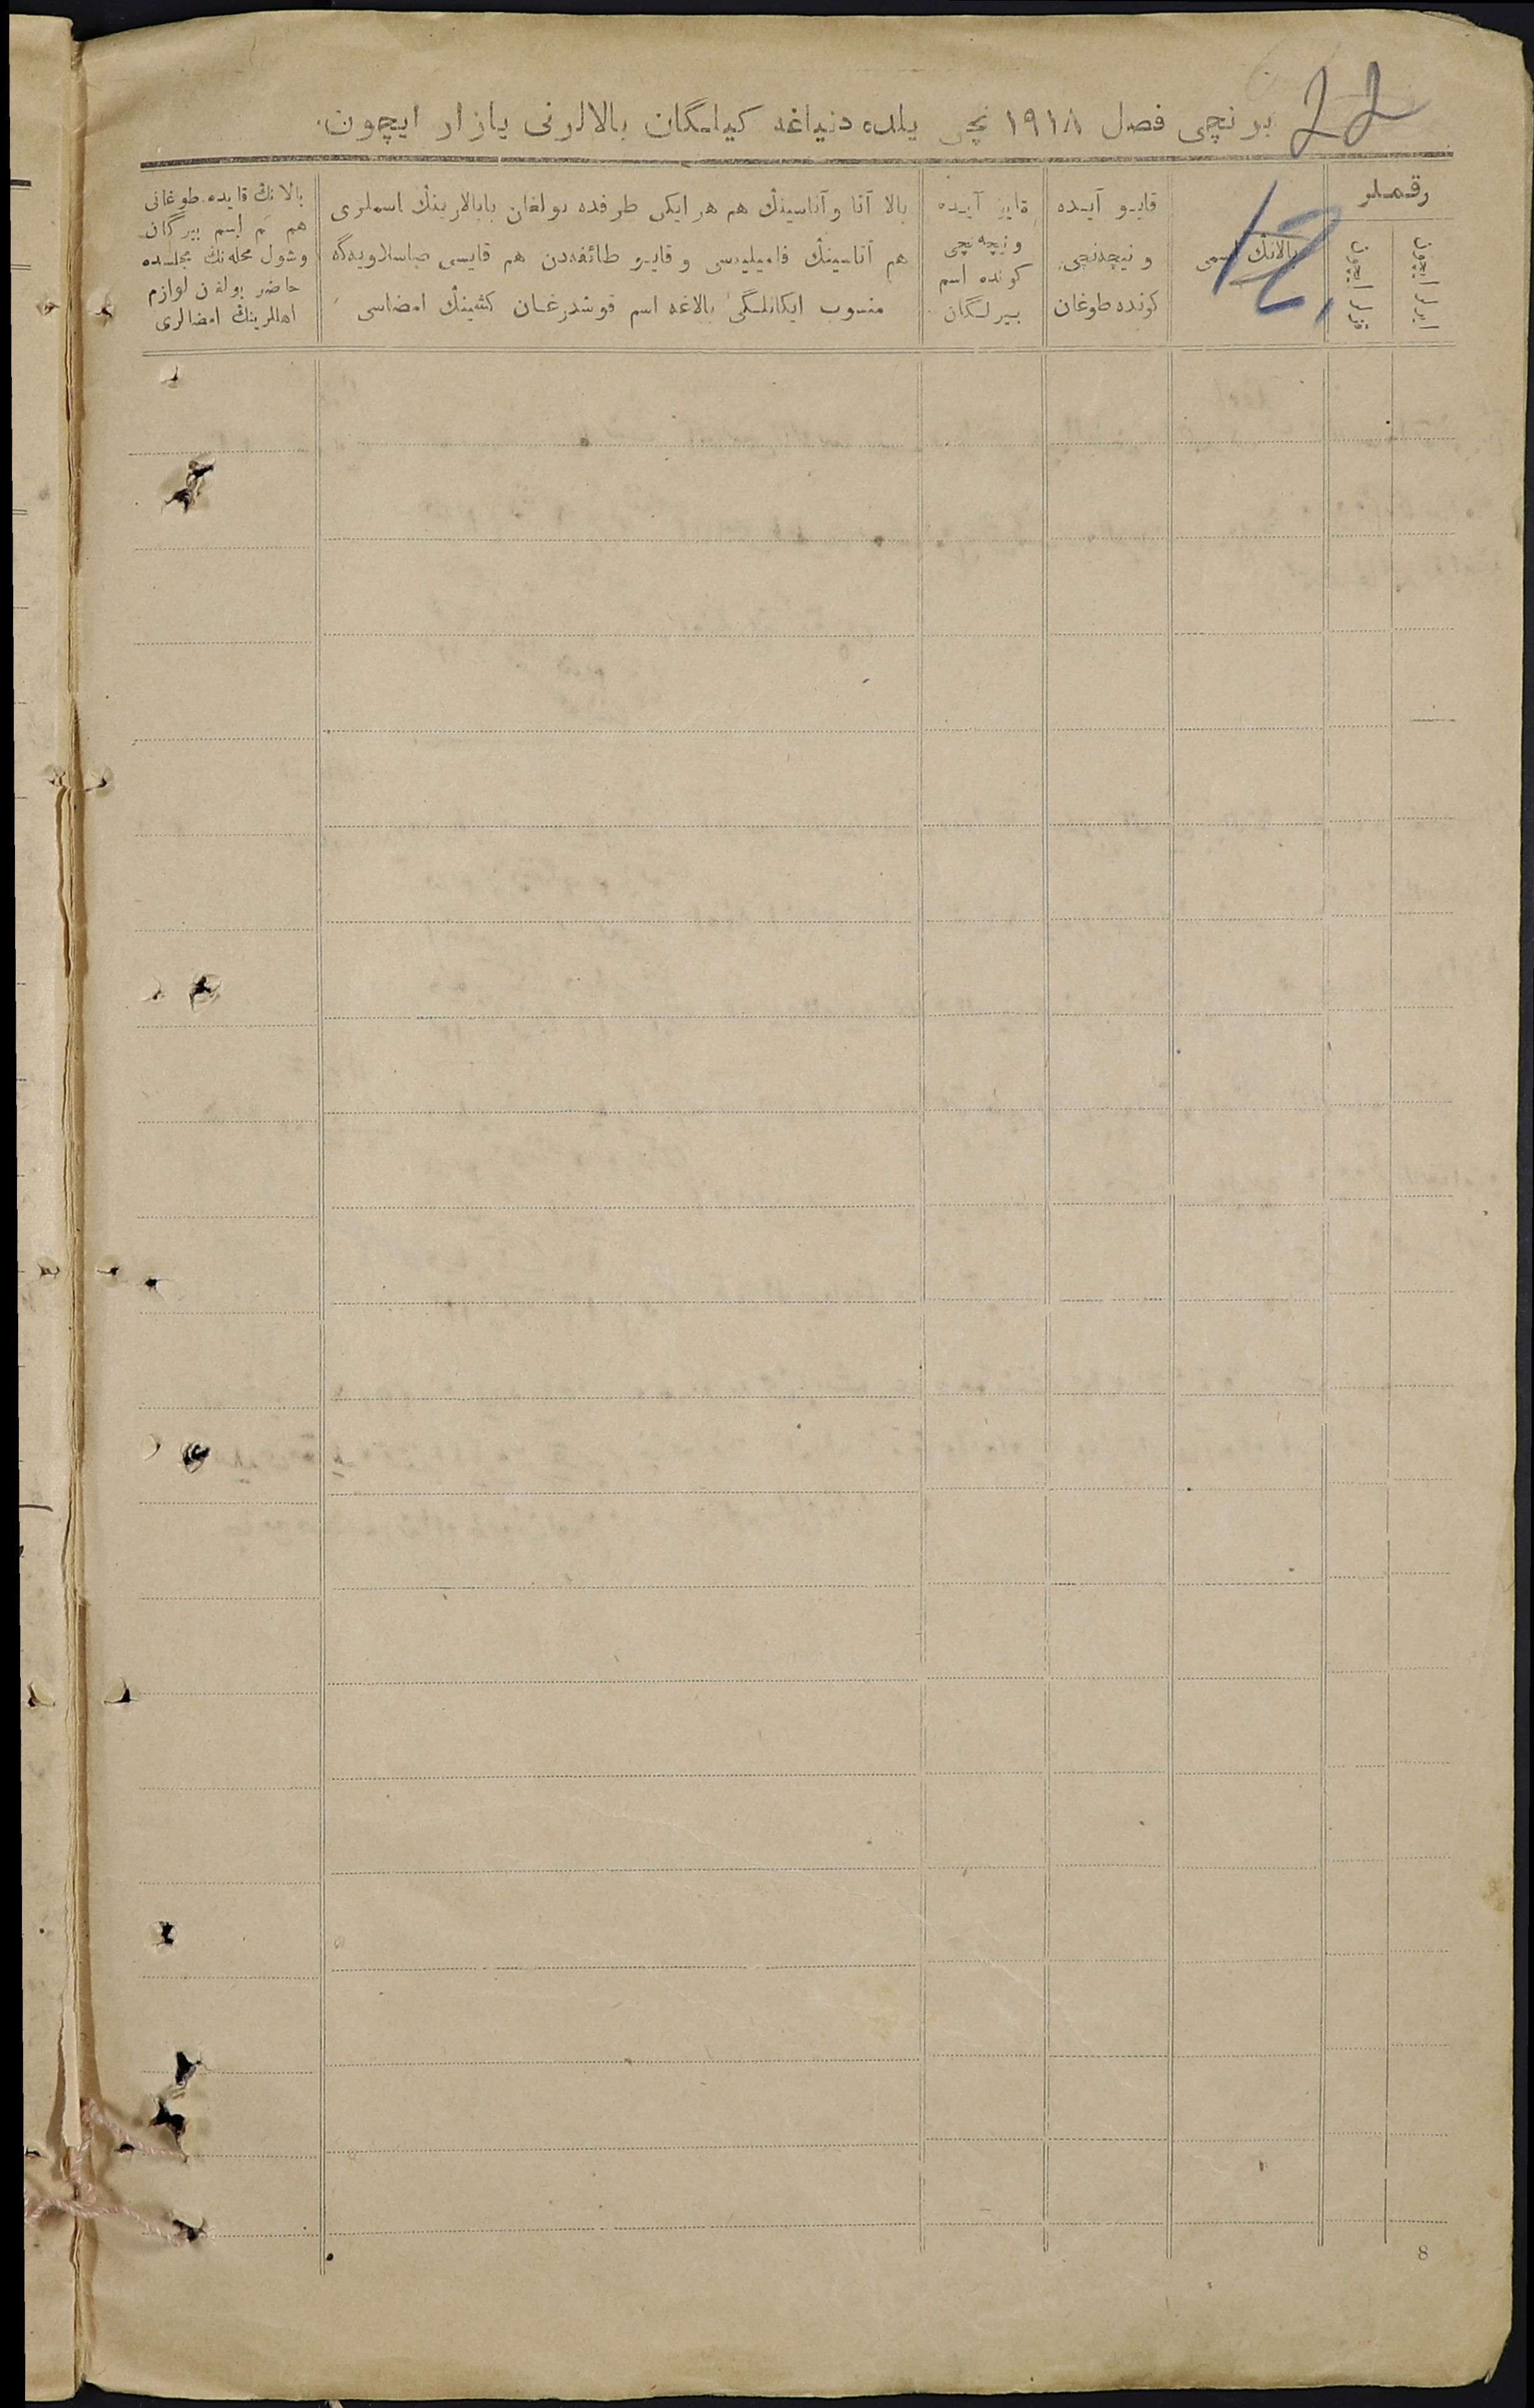 22
برنچی فصل ١٩١٨ نچی یلده دنیاغه کیلگان بالالرنی یازار ایچون.
رقملر
ایرلر ایچون
قزلر ایچون
12,
بالانڭ اسمی
قایو آیده
و نیچه‌نچی
کونده طوغان
قایو آیده
و نیچه نچی
کونده اسم
بیرلگان
بالا آتا و آناسینڭ هم هر ایکی طرفده بولغان بابالارینڭ اسملری
هم آتاسینڭ فامیلیه‌سی و قایو طائفه‌دن هم قایسی صاسلاویه‌گه
منسوب ایکانلگی بالاغه اسم قوشدرغان کشینڭ امضاسی
بالانڭ قایده طوغانی
هم اسم بیرگان
و شول محله‌نڭ مجلسده
حاضر بولغن لوازم
اهللرینڭ امضالری
8